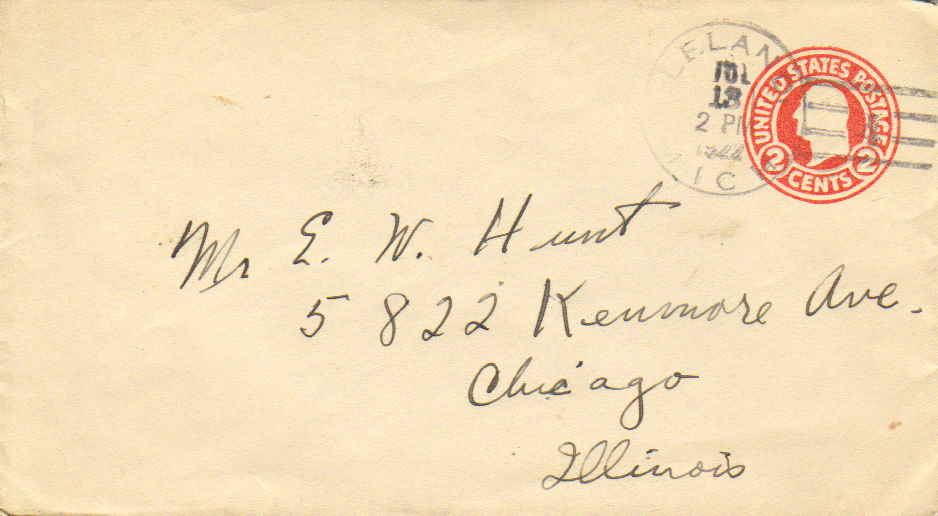 LELAN
JUL
13
2 PM
1922
MIC
UNITED STATES POSTAGE
2 CENTS 2
Mr E. W. Hunt
5822 Kenmore Ave.
Chicago
Illinois